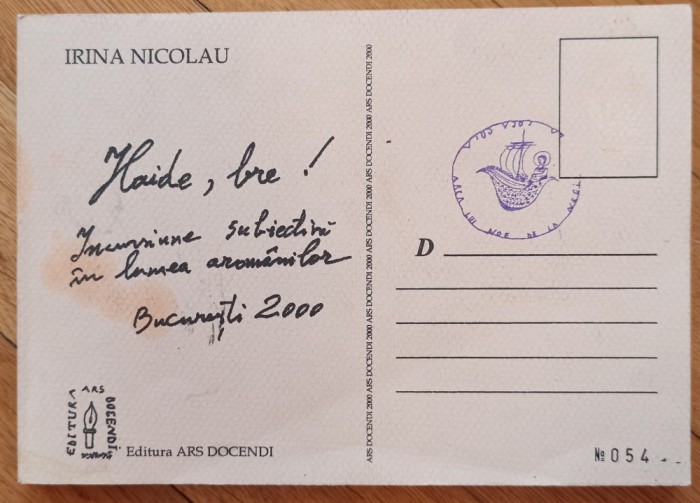 IRINA NICOLAU
Haide, bre !
Incursiune subiectivă
în lumea aromânilor
București 2000
EDITURA ARS DOCENDI
Editura ARS DOCENDI
ARS DOCENDI 2000 ARS DOCENDI 2000 ARS DOCENDI 2000 ARS DOCENDI 2000 ARS DOCENDI 2000 ARS DOCENDI 2000 ARS DOCENDI 2000
COCA COLA
ARCA LUI NOE DE LA
D
№ 054